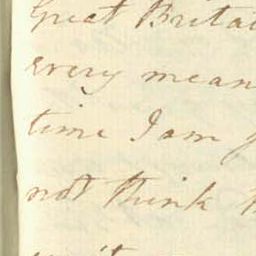 Great Britai
every mean
time I am f
not think t